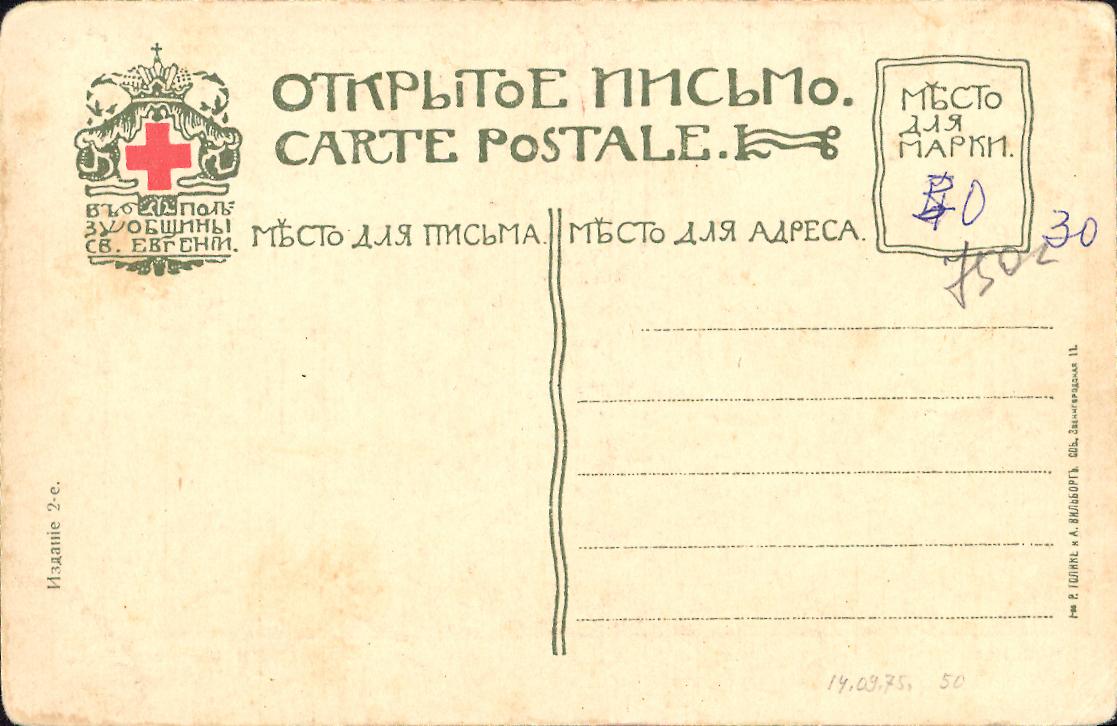 ОТКРЫТОЕ ПИСЬМО.
CARTE POSTALE.
МѢСТО
ДЛЯ
МАРКИ.
ВЪ ПОЛЬ-
ЗУ ОБЩИНЫ
СВ. ЕВГЕНІИ.
МѢСТО ДЛЯ ПИСЬМА.
МѢСТО ДЛЯ АДРЕСА.
0
30
Изданіе 2-е.
Р. ГОЛИКЕ и А. ВИЛЬБОРГЪ. СПБ., Звенигородская 11.
14.09.75. 50